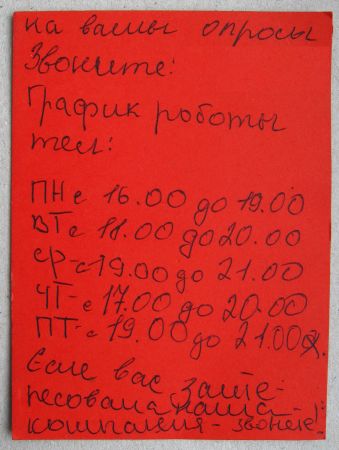 на вашы опросы
Звоните!
График роботы
тел:
ПН с 16.00 до 19.00
ВТ с 18.00 до 20.00
СР-с 19.00 до 21.00
ЧТ-с 17.00 до 20.00
ПТ-с 19.00 до 21.00
Если вас заите-
ресовала наша
компания - звоните!